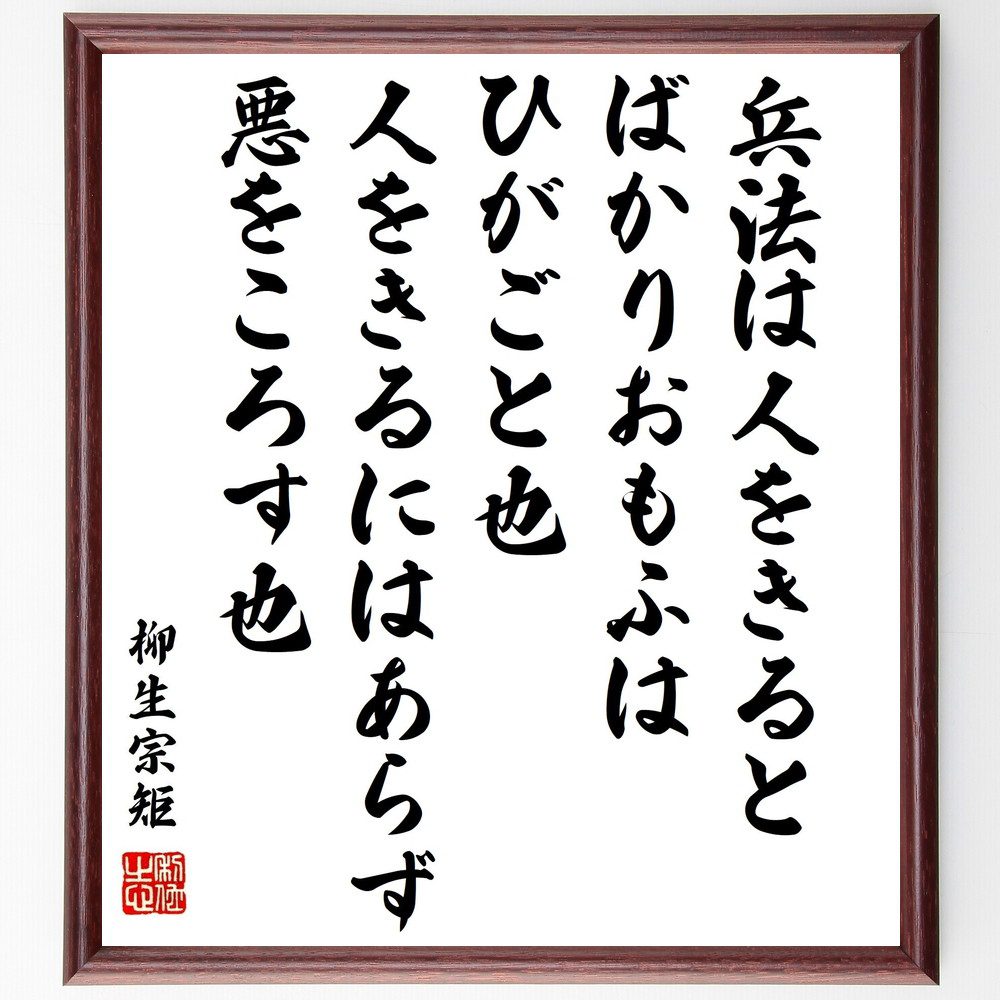 兵法は人をきると
ばかりおもふは
ひがごと也
人をきるにはあらず
悪をころす也
柳生宗矩